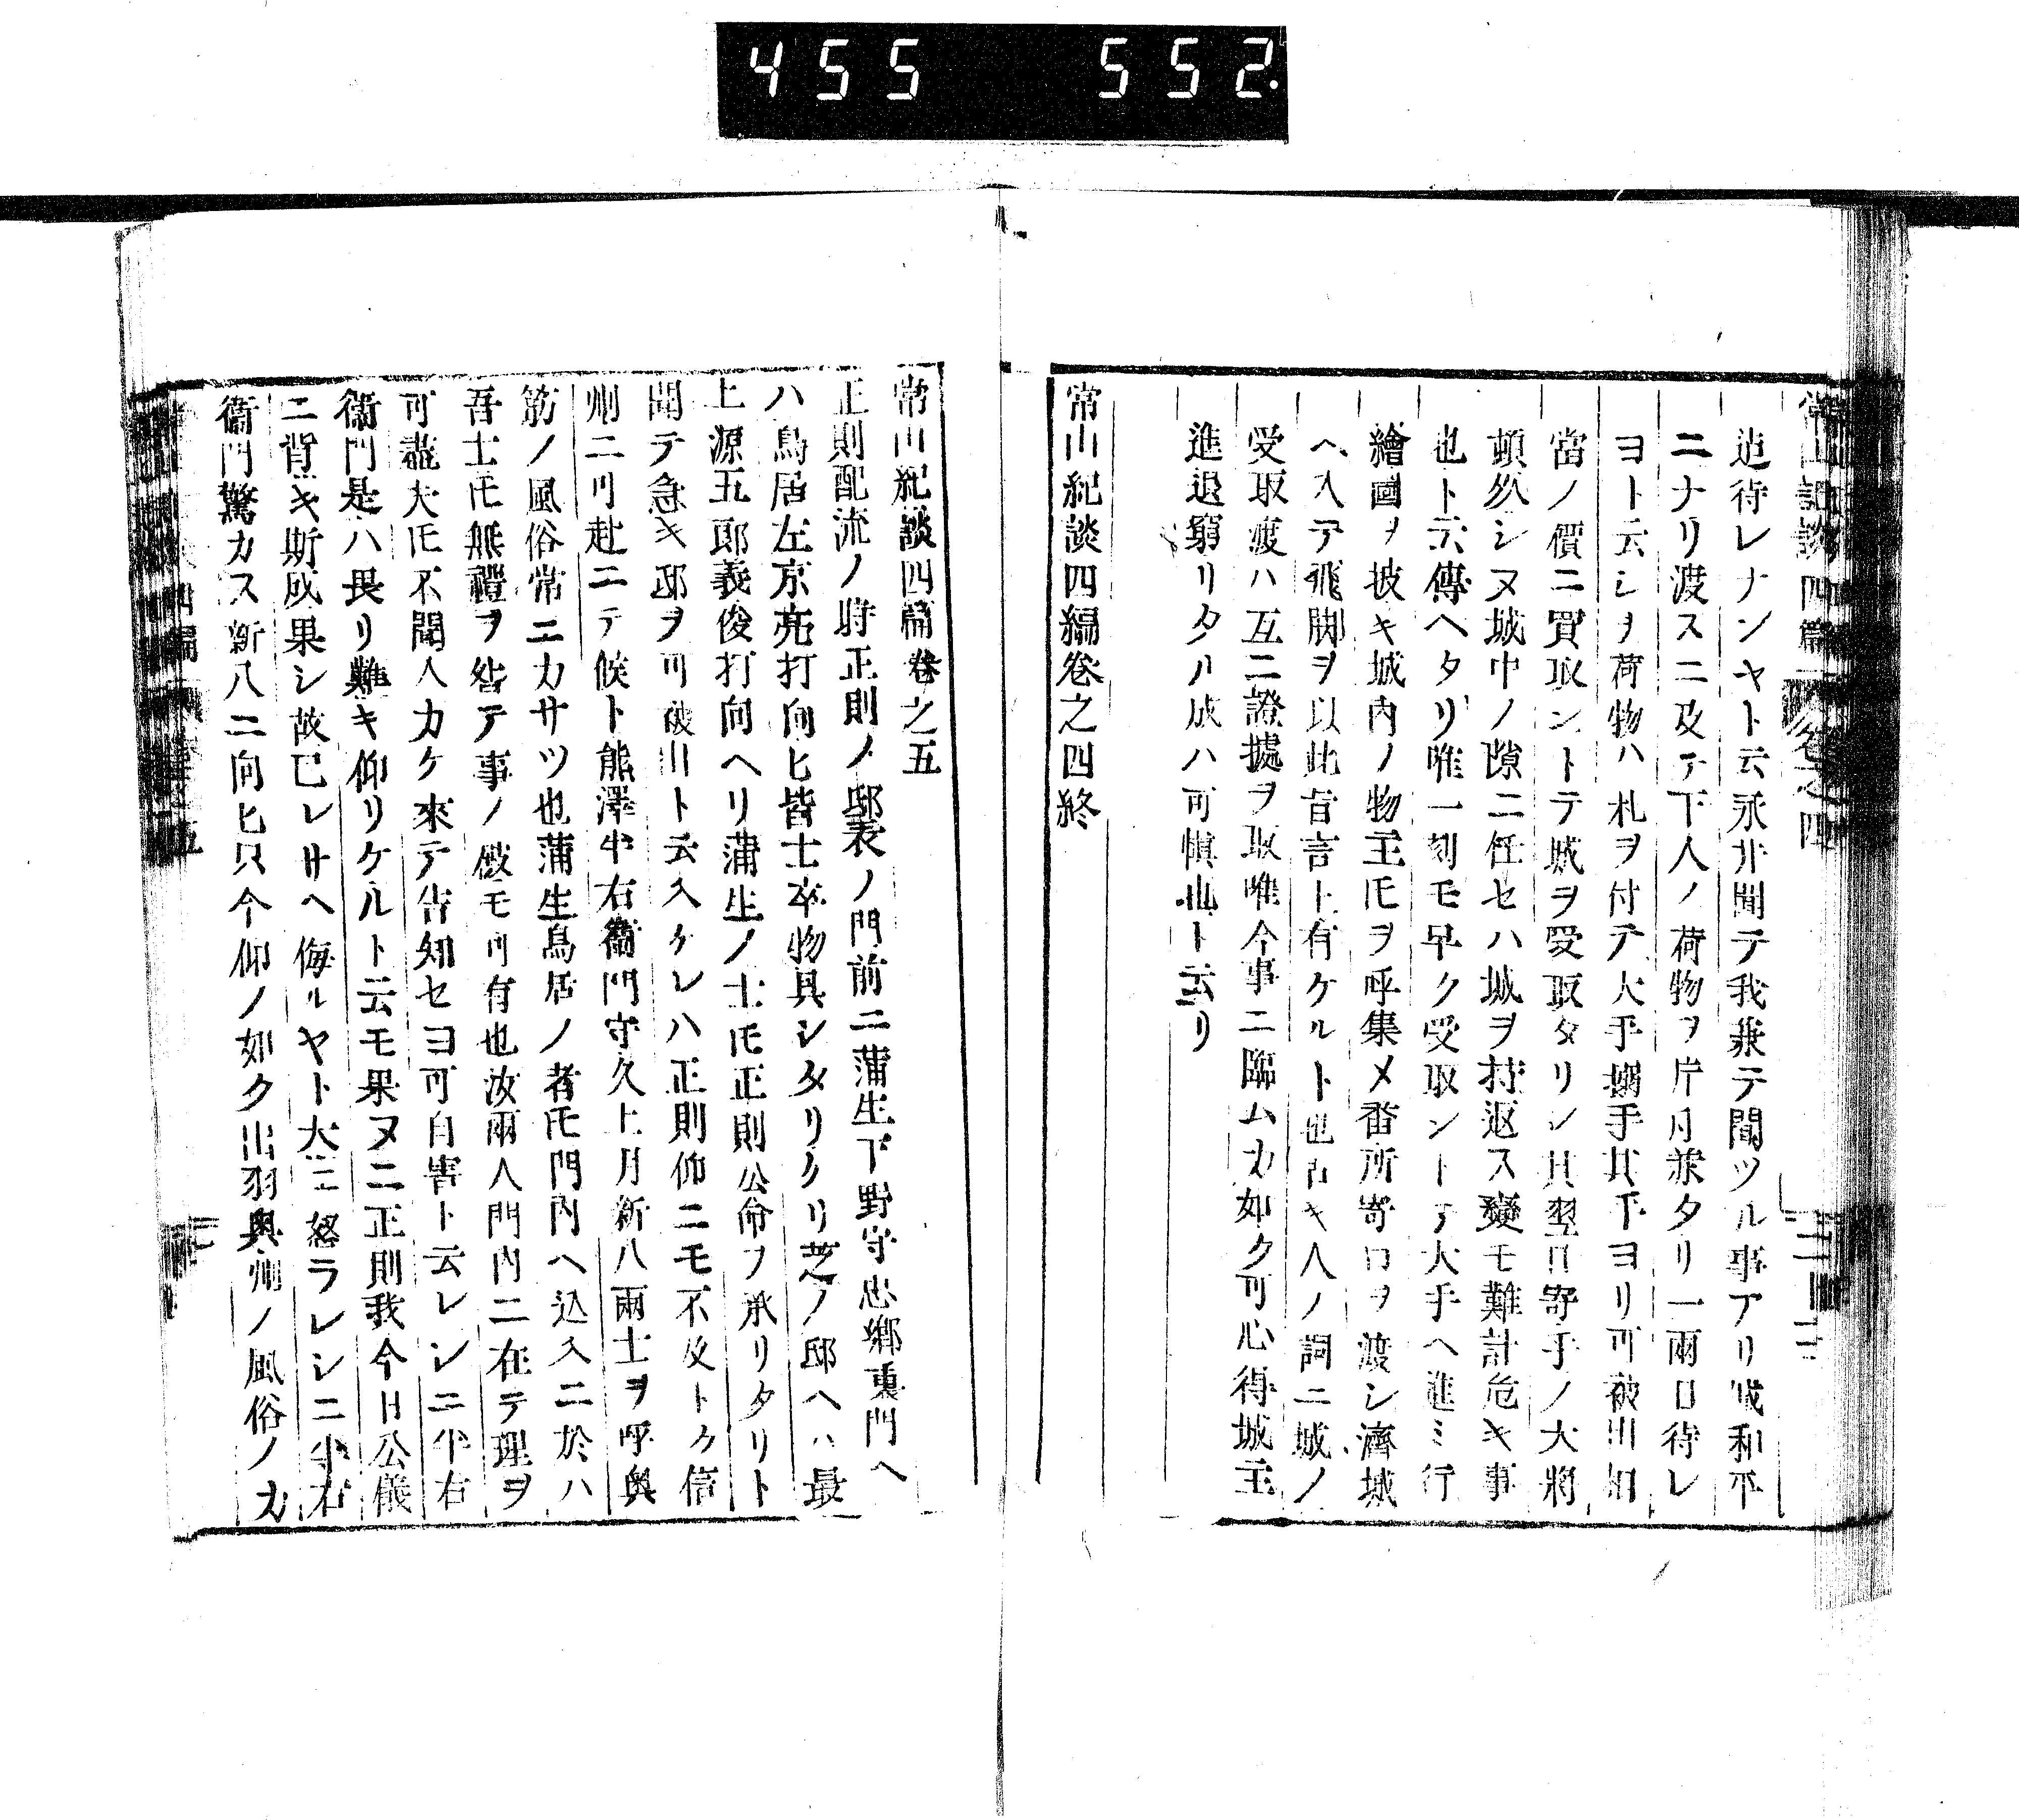 455 552.
迠待レナンヤト云永井聞テ我兼テ聞ツル事アリ城和平
ニナリ渡スニ及テ下人ノ荷物ヲ片月兼タリ一兩日待レ
ヨト云シヲ荷物ハ札ヲ付テ大手搦手其手ヨリ可被出相
當ノ價ニ買取ントテ城ヲ受取タリシ其翌日寄手ノ大將
頓死シヌ城中ノ隙ニ任セハ城ヲ持返ス變モ難計危キ事
也ト云傳ヘタリ唯一刻モ早ク受取ントテ大手ヘ進ミ行
繪圖ヲ披キ城内ノ物主𪜈ヲ呼集メ番所寄口ヲ渡シ濟城
ヘ入テ飛脚ヲ以此旨言上有ケルト也古キ人ノ詞ニ城ノ
受取渡ハ互ニ證據ヲ取唯今事ニ臨ムカ如ク可心得城主
進退窮リタル成ハ可愼也ト云リ
常山紀談四編卷之四終
常山紀談四篇卷之五
正則配流ノ時正則ノ邸表ノ門前ニ蒲生下野守忠郷裏門ヘ
ハ鳥居左京亮打向ヒ皆士卒物具シタリケリ芝ノ邸ヘハ最
上源五郎義俊打向ヘリ蒲生ノ士𪜈正則公命ヲ承リタリト
聞テ急キ邸ヲ可被出ト云入ケレハ正則仰ニモ不及トク信
州ニ可赴ニテ候ト熊澤半右衞門守久上月新八兩士ヲ呼奥
筋ノ風俗常ニカサツ也蒲生鳥居ノ者𪜈門内ヘ込入ニ於ハ
吾士𪜈無禮ヲ咎テ事ノ破モ可有也汝兩人門内ニ在テ理ヲ
可盡夫𪜈不聞入カケ來テ告知セヨ可自害ト云レシニ半右
衞門是ハ畏リ難キ仰リケルト云モ果ヌニ正則我今日公儀
ニ背キ斯成果シ故已レサヘ侮ルヤト大ニ怒ラレシニ半右
衞門驚カス新八ニ向ヒ只今仰ノ如ク出羽奥州ノ風俗ノカ